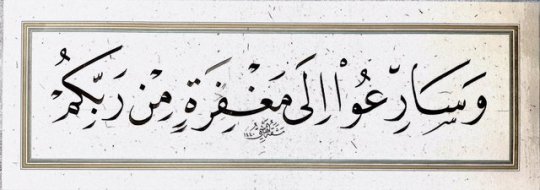 وَسَارِعُوْا إِلَى مَغْفِرَةٍ مِنْ رَبِّكُمْ